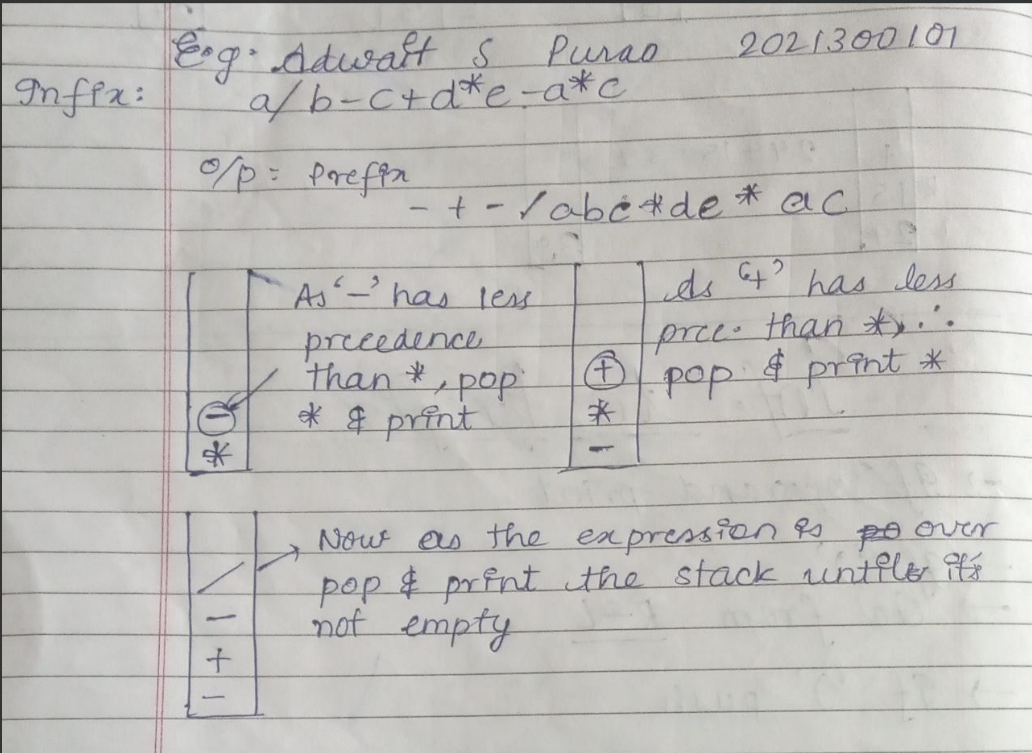 E.g: Adwait S Purao 2021300101
Infix: a/b-c+d*e-a*c
O/p: Prefix
-+-/abc*de*ac
As '-' has less
precedence
than *, pop
* & print
-
*
As '+' has less
prce. than *, ∴
pop & print *
+
*
-
Now as the expression is over
pop & print the stack until it's
not empty
/
-
+
-